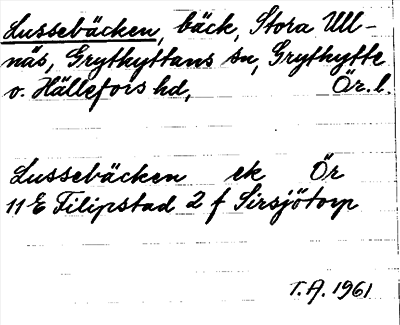 Lussebäcken, bäck, Stora Ull-
näs, Grythyttans sn, Grythytte
o. Hällefors hd, Ör. l.
Lussebäcken ek Ör
11E Filipstad 2 f Sirsjötorp
T.A. 1961